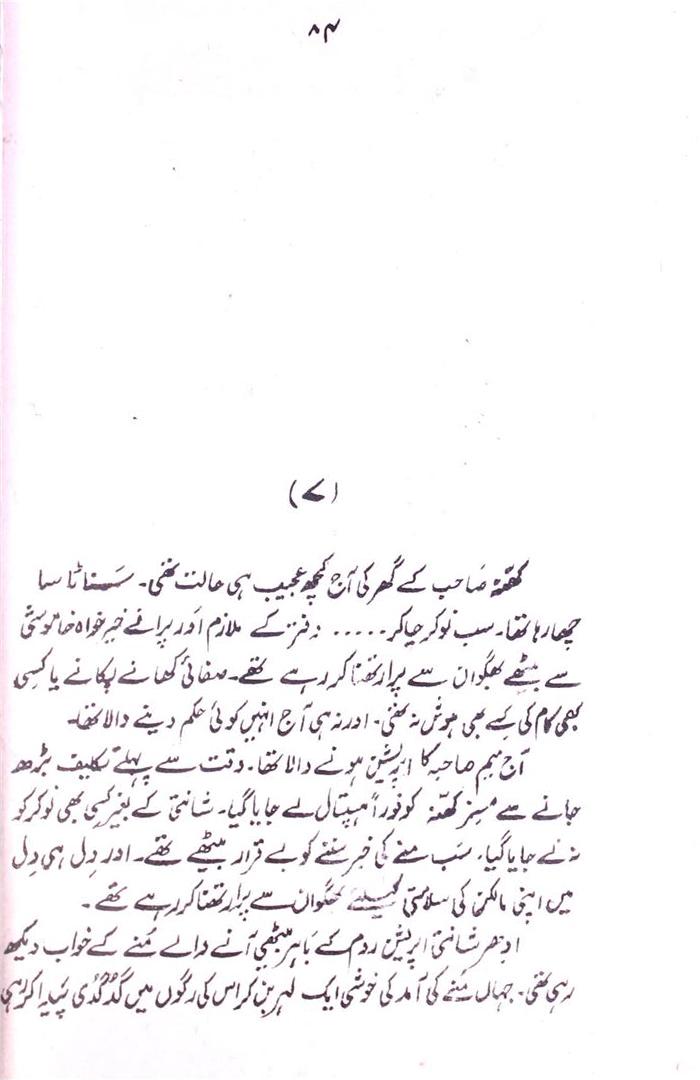 ۸۴
(۷)
کھنّہ صاحب کے گھر کی آج کچھ عجیب ہی حالت تھی۔ سناٹا سا
چھا رہا تھا۔ سب نوکر چاکر ..... دفتر کے ملازم اور پرانے خیر خواہ خاموشی
سے بیٹھے بھگوان سے پرارتھنا کر رہے تھے۔ صفائی کھانے پکانے یا کسی
بھی کام کی کسے بھی ہوش نہ تھی۔ اور نہ ہی آج انہیں کوئی حکم دینے والا تھا۔
آج میم صاحبہ کا اپریشن ہونے والا تھا۔ وقت سے پہلے تکلیف بڑھ
جانے سے مسز کھنّہ کو فوراً ہسپتال لے جایا گیا۔ شانتی کے بغیر کسی بھی نوکر کو
نہ لے جایا گیا۔ سب منے کی خبر سننے کو بے قرار بیٹھے تھے۔ اور دِل ہی دِل
میں اپنی مالکن کی سلامتی کیلئے بھگوان سے پرارتھنا کر رہے تھے۔
ادھر شانتی اپریشن روم کے باہر بیٹھی آنے والے مُنے کے خواب دیکھ
رہی تھی۔ جہاں مُنے کی آمد کی خوشی ایک لہر بن کر اس کی رگوں میں گُدگُدی پیدا کر رہی